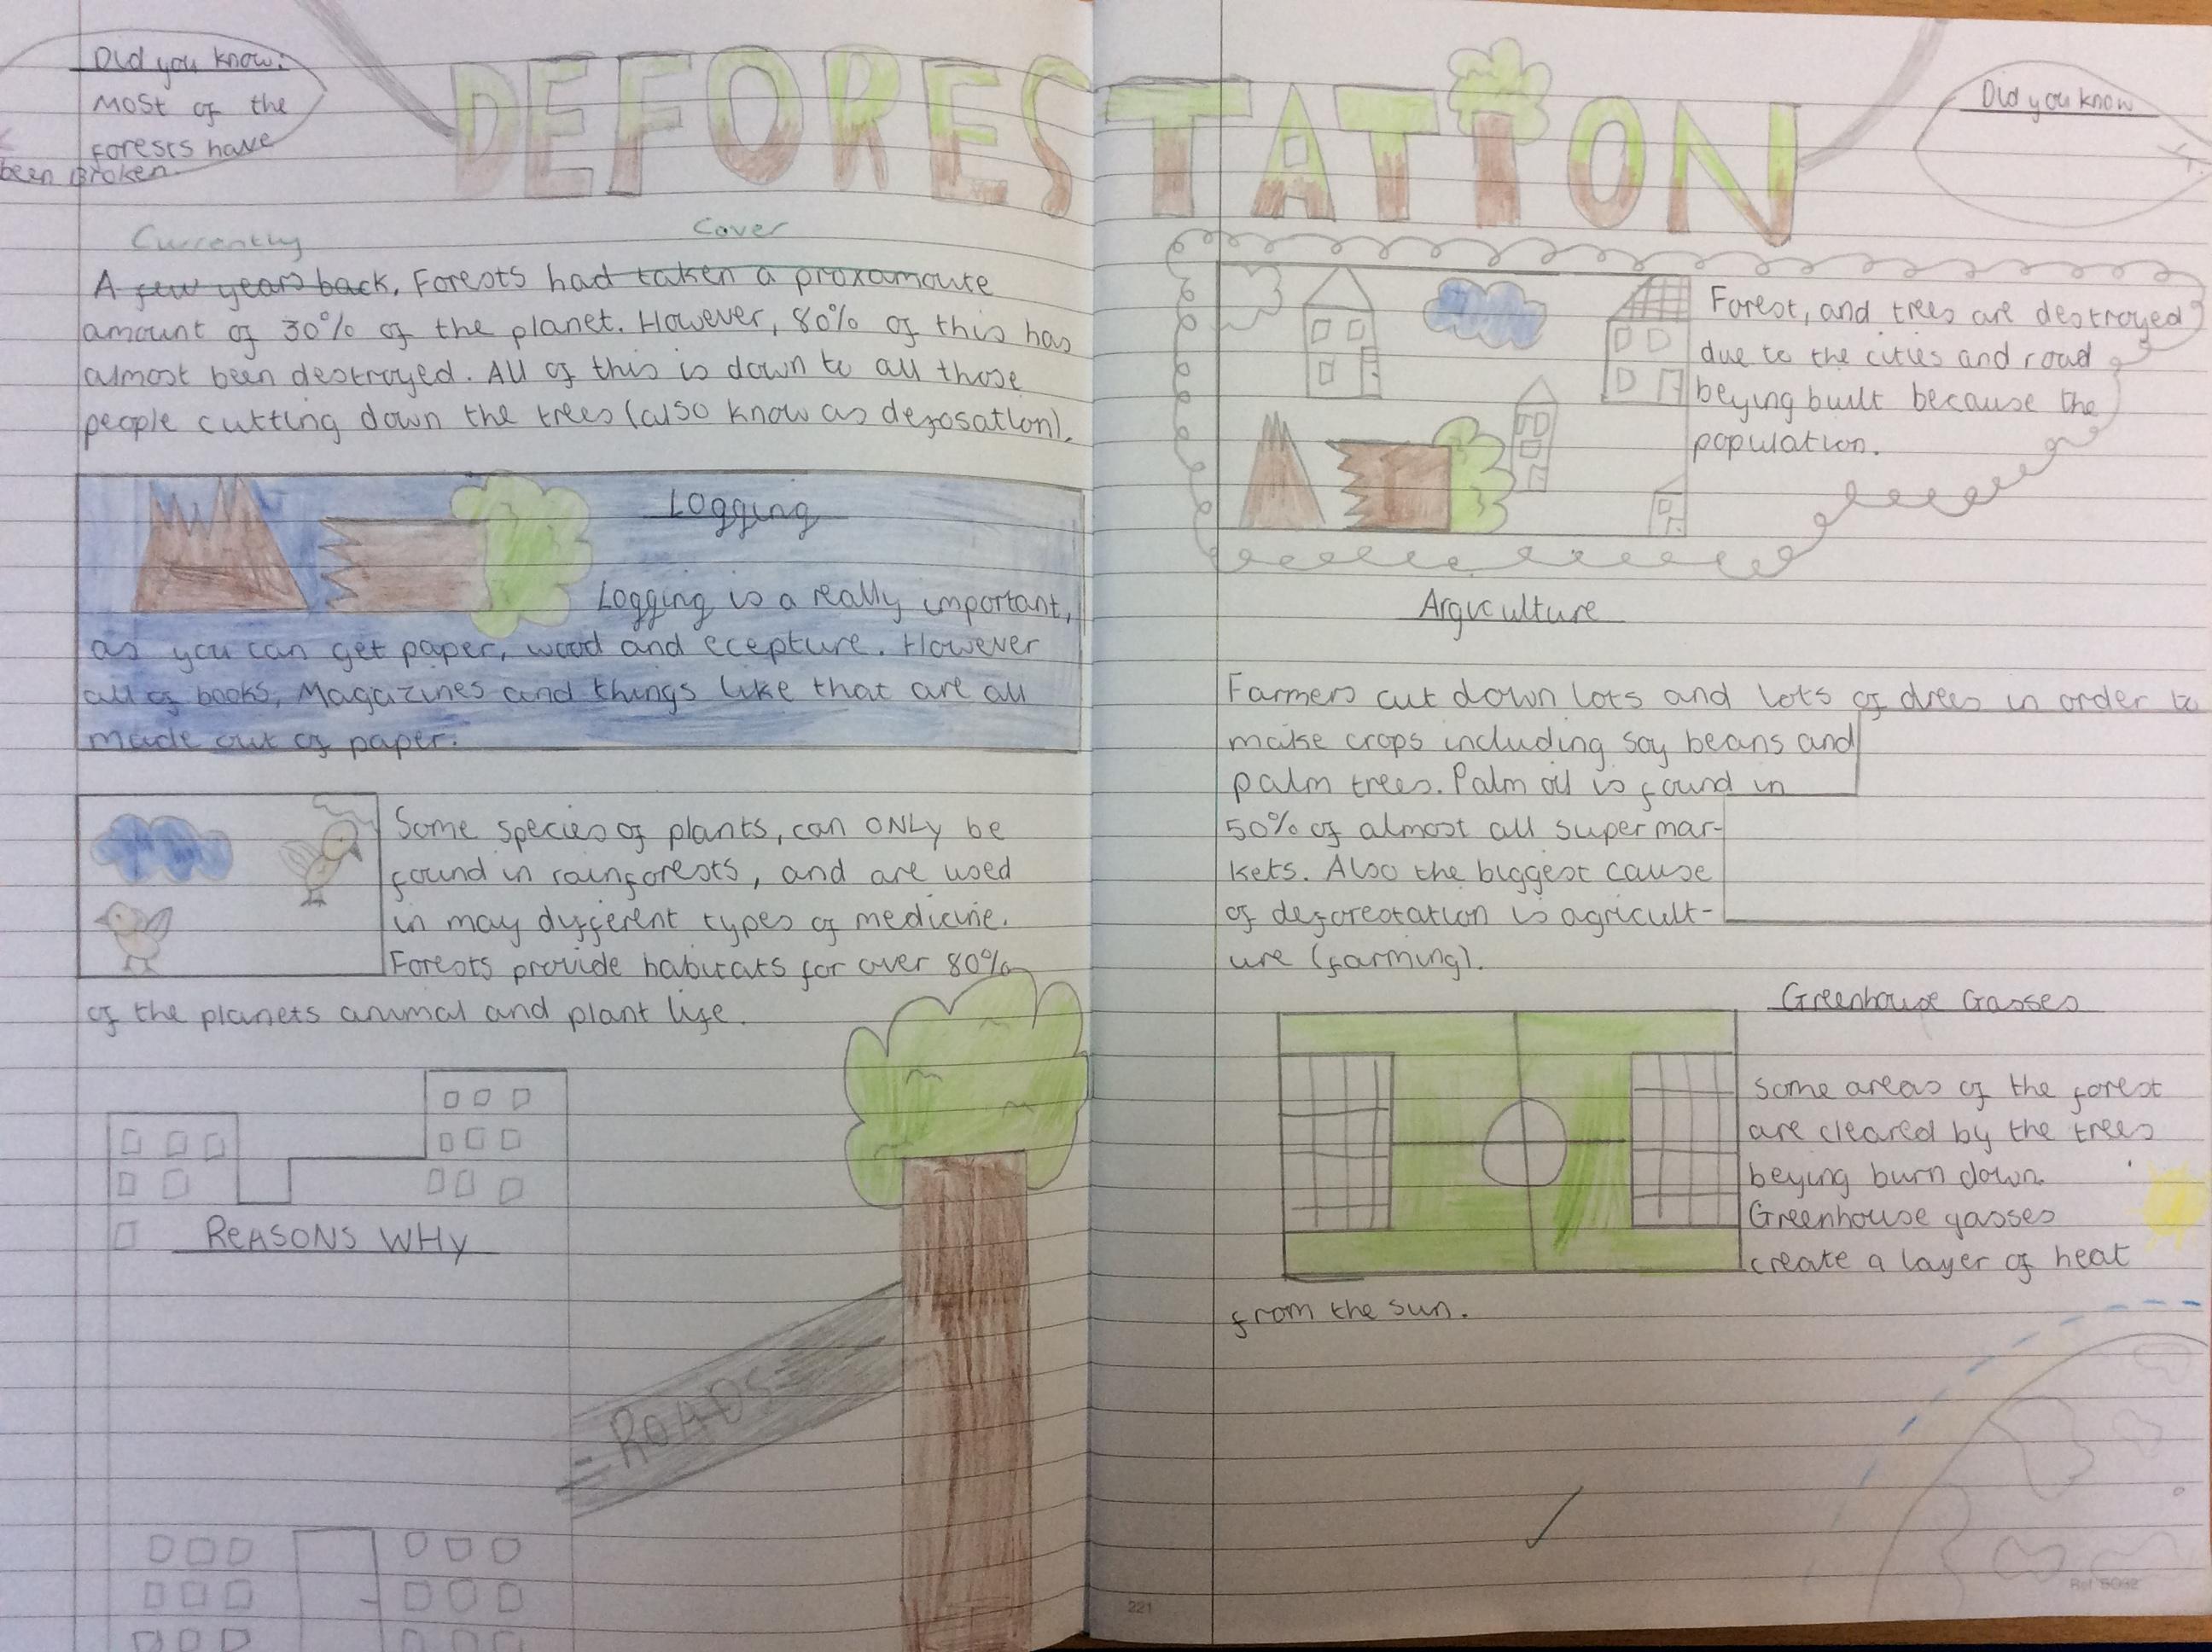 Did you know:
Most of the
forests have
been Broken.
DEFORESTATION
Did you know
Currently
Cover
A few years back, Forests had taken a proxamoute
amount of 30% of the planet. However, 80% of this has
almost been destroyed. All of this is down to all those
people cutting down the trees (also know as defosation).
Logging
Logging is a really important,
as you can get paper, wood and ecepture. However
all of books, Magazines and things like that are all
made out of paper.
Some species of plants, can ONLY be
found in rainforests, and are used
in may different types of medicine.
Forests provide habitats for over 80%
of the planets animal and plant life.
REASONS WHY
ROADS
Forest, and trees are destroyed
due to the cities and road
beying built because the
population.
Argiculture
Farmers cut down lots and lots of drees in order to
make crops including soy beans and
palm trees. Palm oil is found in
50% of almost all supermar-
kets. Also the biggest cause
of deforestation is agricult-
ure (farming).
Greenhouse Gasses
Some areas of the forest
are cleared by the trees
beying burn down.
Greenhouse gasses
create a layer of heat
from the sun.
221